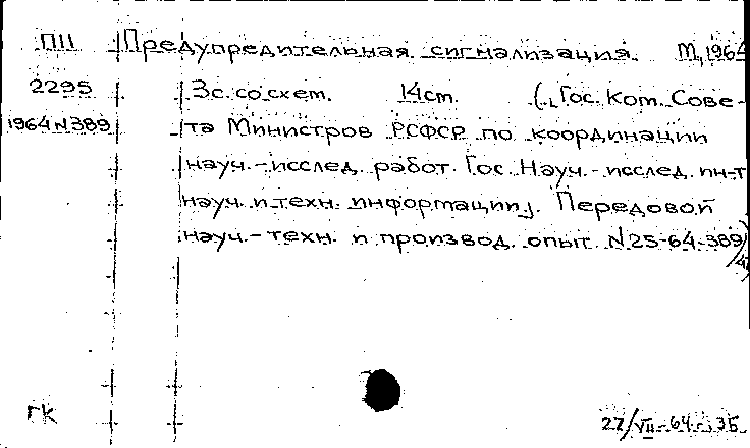 П11 Предупредительная сигнализация. М, 1964
2295 3с. со схем. 14см. (Гос. Ком. Сове-
1964 N389 та Министров РСФСР по координации
науч.-исслед. работ. Гос. Науч.-исслед. ин-т
науч. и техн. информации). Передовой
науч.-техн. и производ. опыт. N25-64-389/
ГК
27/VII-64